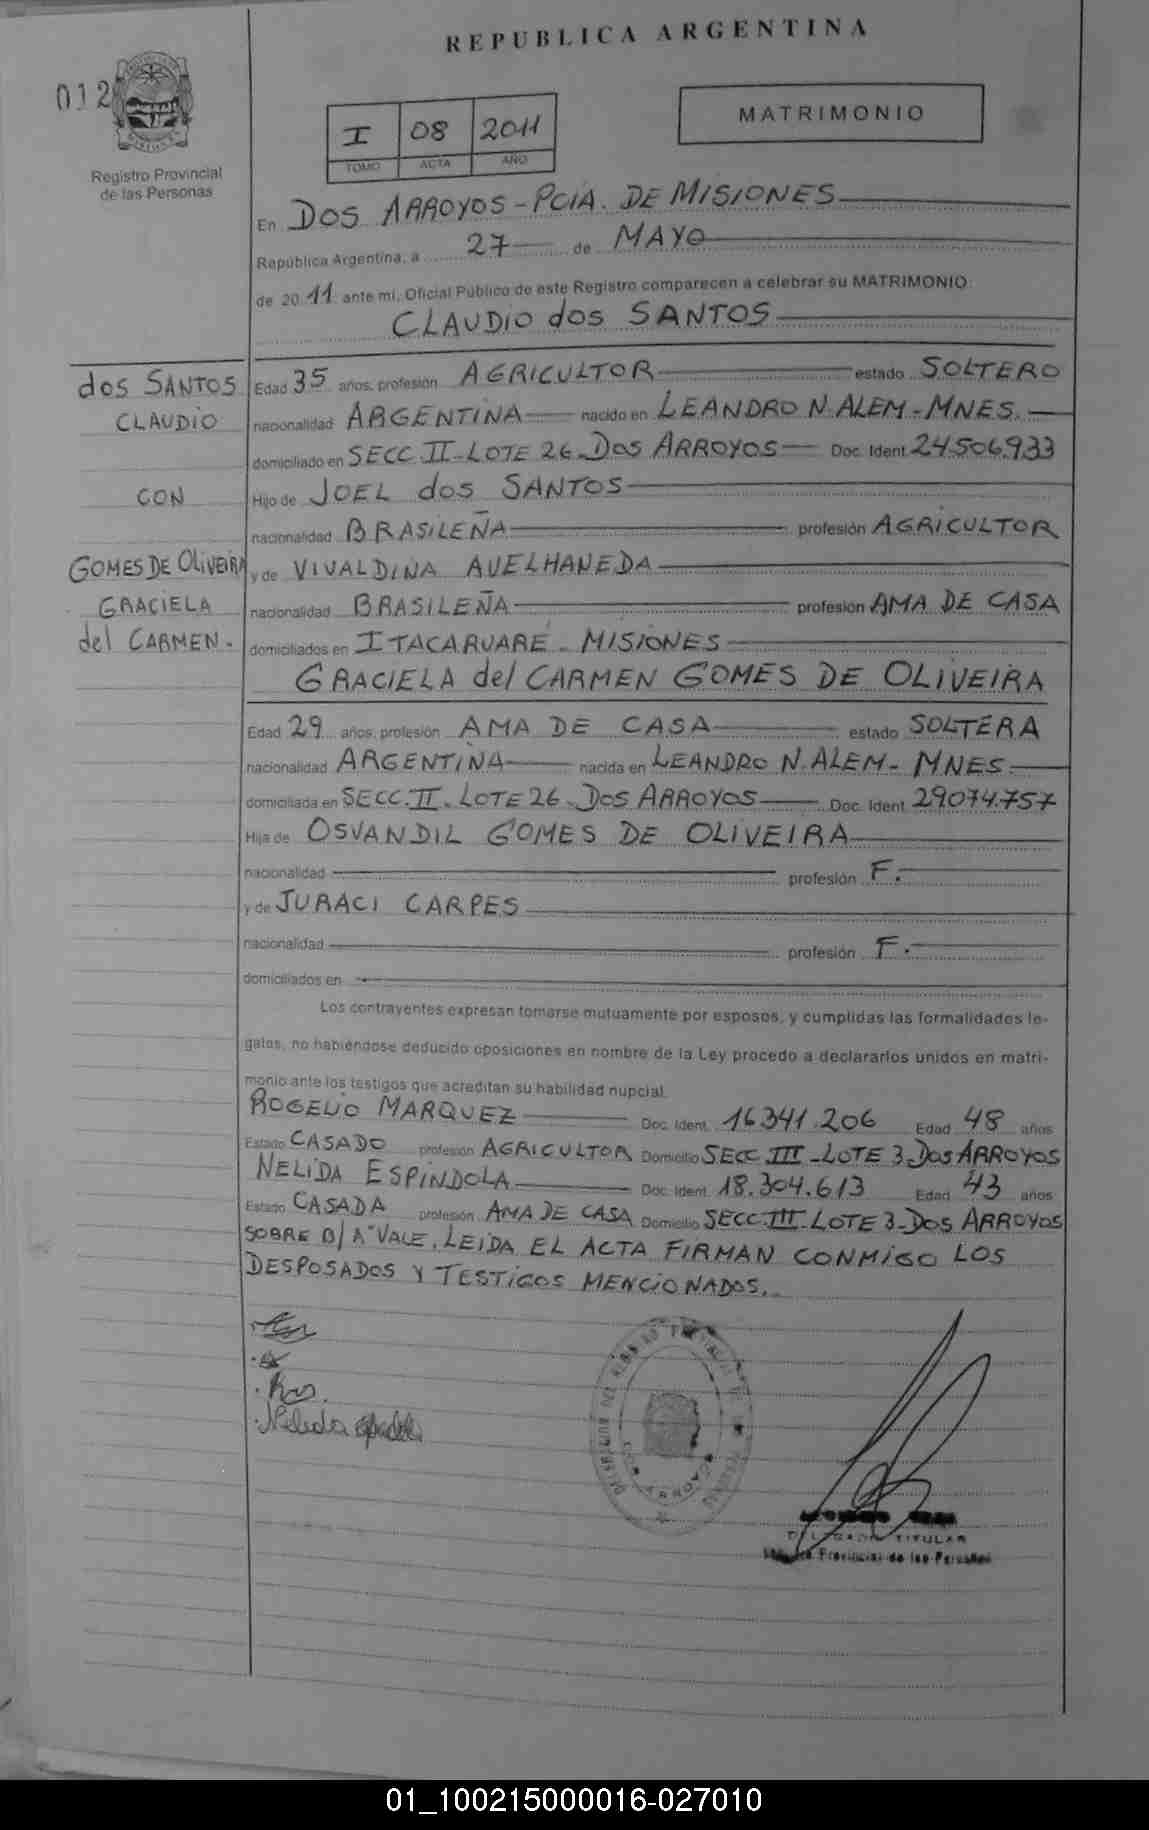 REPUBLICA ARGENTINA
012
Registro Provincial
de las Personas
I 08 2011
TOMO ACTA AÑO
MATRIMONIO
En DOS ARROYOS - PCIA. DE MISIONES
República Argentina, a 27 de MAYO
de 2011 ante mi, Oficial Público de este Registro comparecen a celebrar su MATRIMONIO
CLAUDIO dos SANTOS
dos SANTOS
CLAUDIO
CON
GOMES DE OLIVEIRA
GRACIELA
del CARMEN.
Edad 35 años, profesión AGRICULTOR estado SOLTERO
nacionalidad ARGENTINA nacido en LEANDRO N. ALEM - MNES.
domiciliado en SECC. II - LOTE 26 - DOS ARROYOS Doc. Ident. 24.506.933
Hijo de JOEL dos SANTOS
nacionalidad BRASILEÑA profesión AGRICULTOR
y de VIVALDINA AVELHANEDA
nacionalidad BRASILEÑA profesión AMA DE CASA
domiciliados en ITACARUARÉ - MISIONES
GRACIELA del CARMEN GOMES DE OLIVEIRA
Edad 29 años, profesión AMA DE CASA estado SOLTERA
nacionalidad ARGENTINA nacida en LEANDRO N. ALEM - MNES.
domiciliada en SECC. II - LOTE 26 - DOS ARROYOS Doc. Ident. 29.074.757
Hija de OSVANDIL GOMES DE OLIVEIRA
nacionalidad profesión F.
y de JURACI CARPES
nacionalidad profesión F.
domiciliados en
Los contrayentes expresan tomarse mutuamente por esposos, y cumplidas las formalidades le-
gales, no habiéndose deducido oposiciones en nombre de la Ley procedo a declararlos unidos en matri-
monio ante los testigos que acreditan su habilidad nupcial.
ROGELIO MARQUEZ Doc. Ident. 16.341.206 Edad 48 años
Estado CASADO profesión AGRICULTOR Domicilio SECC. III - LOTE 3 - DOS ARROYOS
NELIDA ESPINDOLA Doc. Ident. 18.304.613 Edad 43 años
Estado CASADA profesión AMA DE CASA Domicilio SECC. III - LOTE 3 - DOS ARROYOS
SOBRE B/ "A" VALE. LEIDA EL ACTA FIRMAN CONMIGO LOS
DESPOSADOS Y TESTIGOS MENCIONADOS.
Nelida
DOS ARROYOS
TITULAR
Provincial de las Personas
01_100215000016-027010